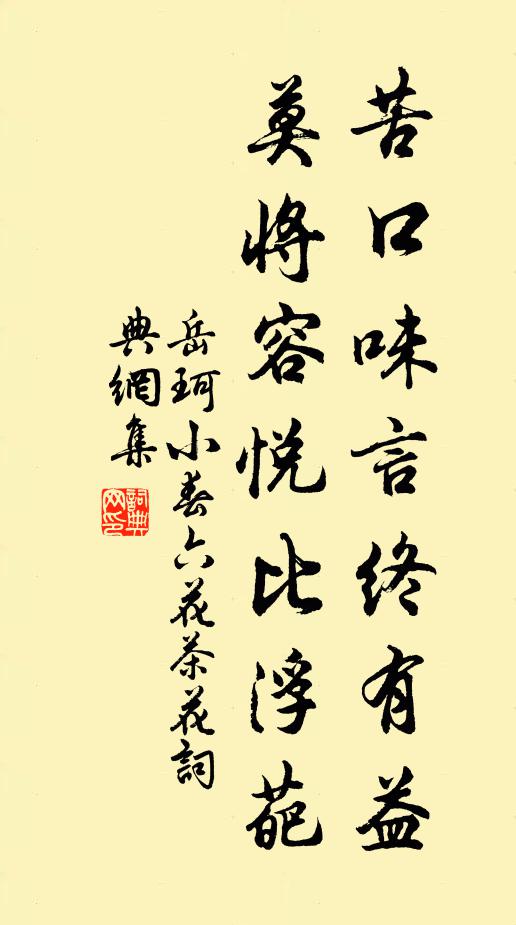 苦口味言終有益
莫將容悅比浮葩
岳珂小春六花茶花詞
典網集
詞典網印